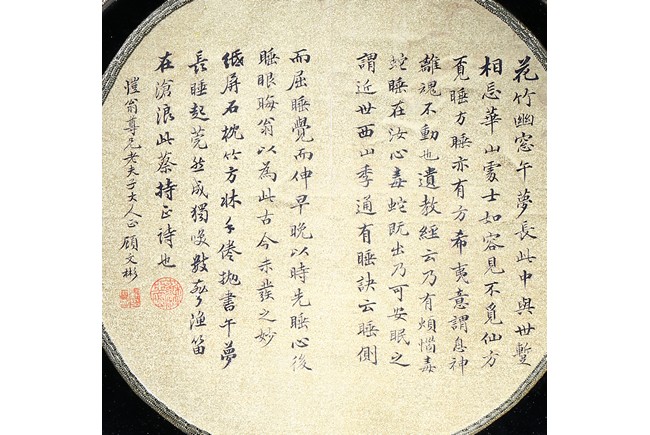 花竹幽窓午夢長此中與世暫
相忘華山處士如容見不覓仙方
覓睡方睡亦有方希夷意謂息神
離魂不動也遺教經云乃有煩惱毒
蛇睡在汝心毒蛇既出乃可安眠之
謂近世西山季通有睡訣云睡側
而屈睡覺而伸早晚以時先睡心後
睡眼晦翁以為此古今未發之妙
紙屏石枕竹方牀手倦拋書午夢
長睡起莞然成獨咲數聲漁笛
在滄浪此蔡持正詩也
愷翁尊兄老夫子大人正 顧文彬